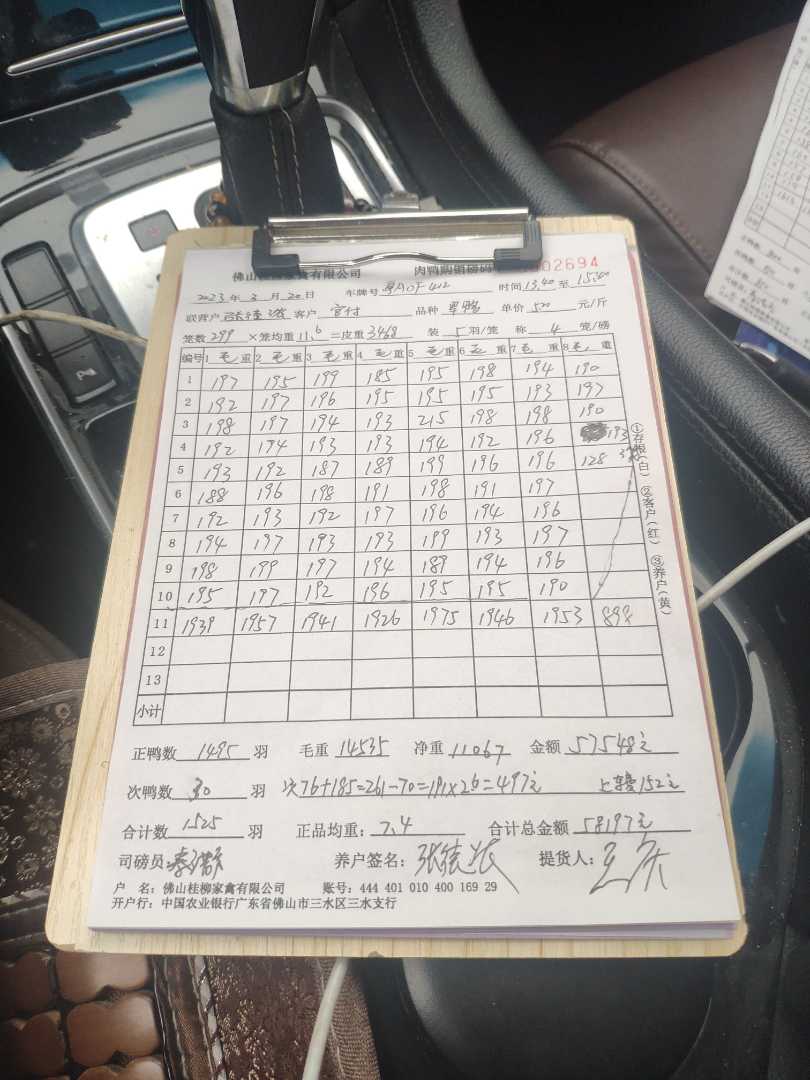 佛山桂柳家禽有限公司 肉鸭购销磅码 02694
2023年3月20日 车牌号 粤AOF412 时间13.40至15.40
联营户 客户 官付 品种 单价 元/斤
笼数299×笼均重11.6=皮重3468 装5羽/笼 称4笼/磅
编号 1毛重 2毛重 3毛重 4毛重 5毛重 6毛重 7毛重 8毛重
1 197 195 199 185 195 198 194 190
2 192 197 196 195 195 195 193 197
3 198 197 194 193 215 198 198 190
4 192 194 193 193 194 192 196 193
5 193 192 187 189 199 196 196 128
6 188 196 198 191 198 191 197
7 192 193 192 197 196 194 196
8 194 197 193 193 199 193 197
9 198 199 197 194 189 194 196
10 195 197 192 196 195 195 190
11 1939 1957 1941 1926 1975 1946 1953 898
12
13
小计
①存根(白) ②客户(红) ③养户(黄)
正鸭数 1495 羽 毛重 14535 净重 11067 金额 57548元
次鸭数 30 羽 次76+185=261-70=191×26=497元 152元
合计数 1525 羽 正品均重: 7.4 合计总金额 58197元
司磅员: 养户签名: 提货人:
户 名: 佛山桂柳家禽有限公司 账号: 444 401 010 400 169 29
开户行: 中国农业银行广东省佛山市三水区三水支行